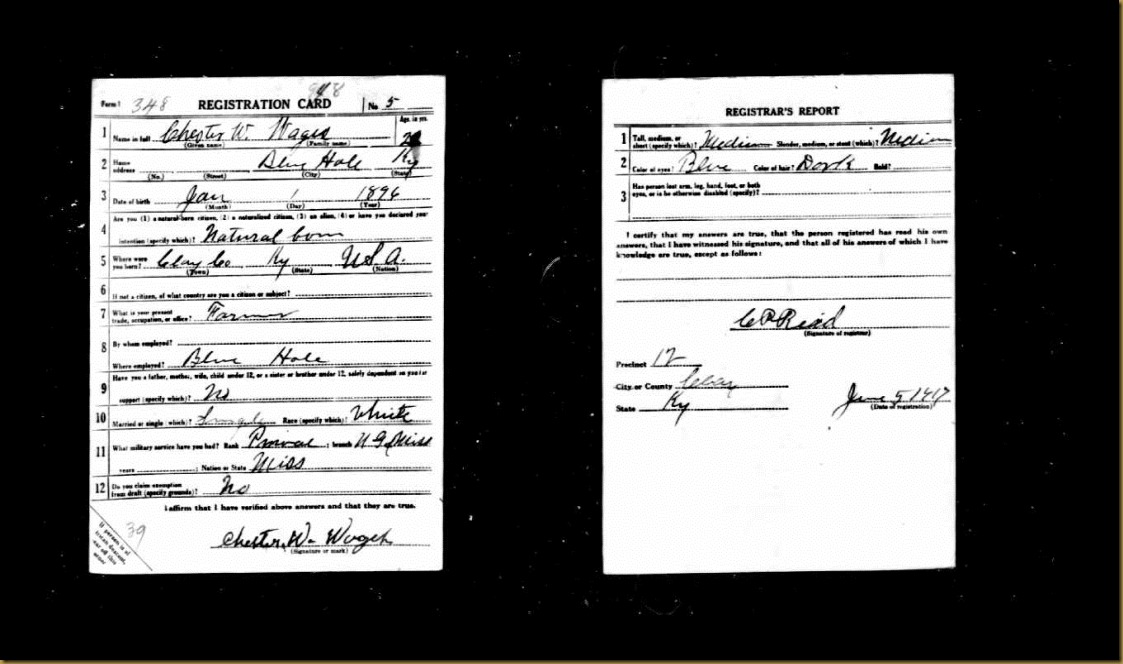 Form 1 348 REGISTRATION CARD No 5
Age, in yrs.
1 Name in full Chester W. Wages
(Given name) (Family name)
2 Home address Blue Hole Ky
(No.) (Street) (City) (State)
3 Date of birth Jan 1 1896
(Month) (Day) (Year)
Are you (1) a natural-born citizen, (2) a naturalized citizen, (3) an alien, (4) or have you declared your
4 intention (specify which)? Natural born
5 Where were you born? Clay Co Ky U.S.A.
(Town) (State) (Nation)
6 If not a citizen, of what country are you a citizen or subject?
7 What is your present trade, occupation, or office? Farmer
8 By whom employed?
Where employed? Blue Hole
Have you a father, mother, wife, child under 12, or a sister or brother under 12, solely dependent on you for
9 support (specify which)? No
10 Married or single (which)? Race (specify which)? White
11 What military service have you had? Rank ; branch
years ; Nation or State Miss
12 Do you claim exemption from draft (specify grounds)? No
I affirm that I have verified above answers and that they are true.
39
Chester W. Wages
(Signature or mark)
If person is of
African descent,
tear off this
corner
REGISTRAR'S REPORT
1 Tall, medium, or short (specify which)? Medium Slender, medium, or stout (which)? Medium
2 Color of eyes? Blue Color of hair? Dark Bald?
3 Has person lost arm, leg, hand, foot, or both
eyes, or is he otherwise disabled (specify)?
I certify that my answers are true, that the person registered has read his own
answers, that I have witnessed his signature, and that all of his answers of which I have
knowledge are true, except as follows:
(Signature of registrar)
Precinct 12
City or County Clay
State Ky June 5 1917
(Date of registration)